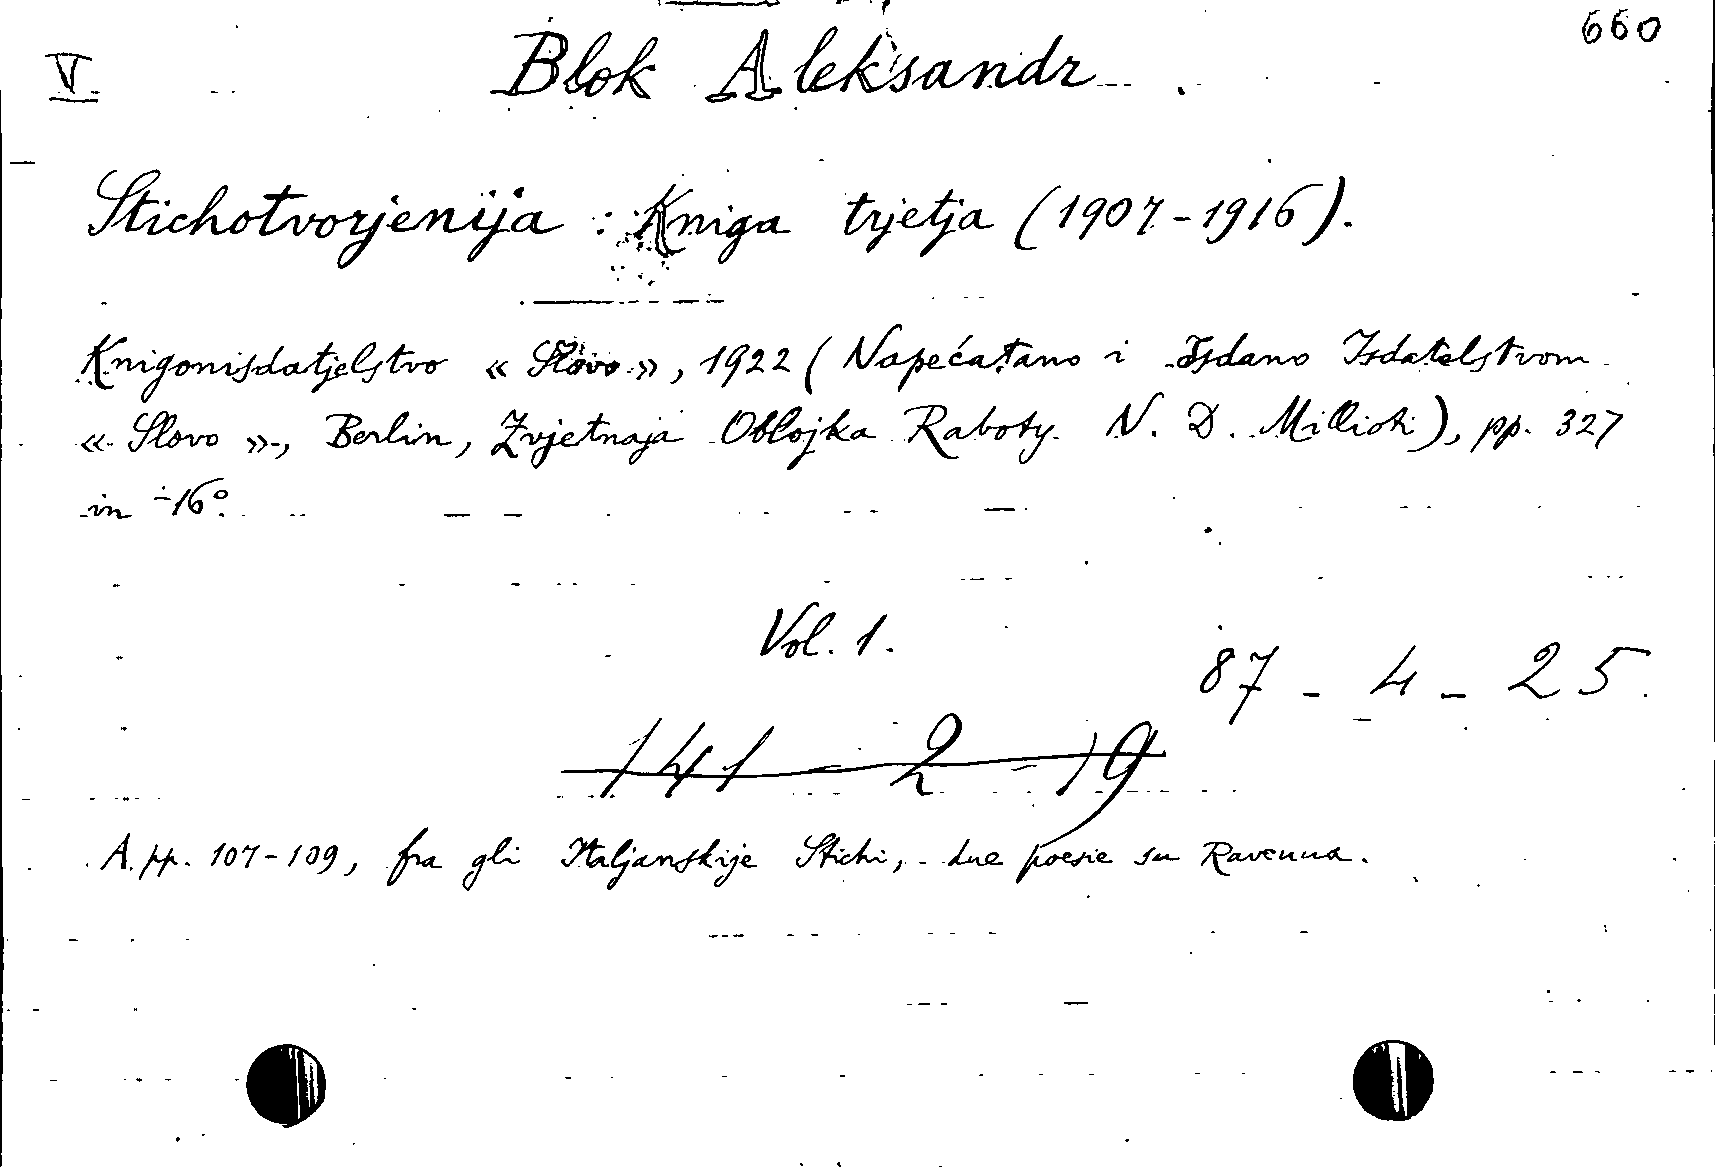 660
V
Blok Aleksandr
Stichotvorjenija : Kniga trjetja (1907-1916).
Knigonisdatjelstvo « Slovo », 1922 ( Napećatano i Isdano Isdatelstvom
« Slovo », Berlin, Zvjetnaja Oblojka Raboty N. D. Millioti), pp. 327
in -16°.
Vol. 1.
87 - 4 - 25.
141 - 2 - 19
A pp. 107-109, fra gli Italjanskije Stichi, due poesie su Ravenna.